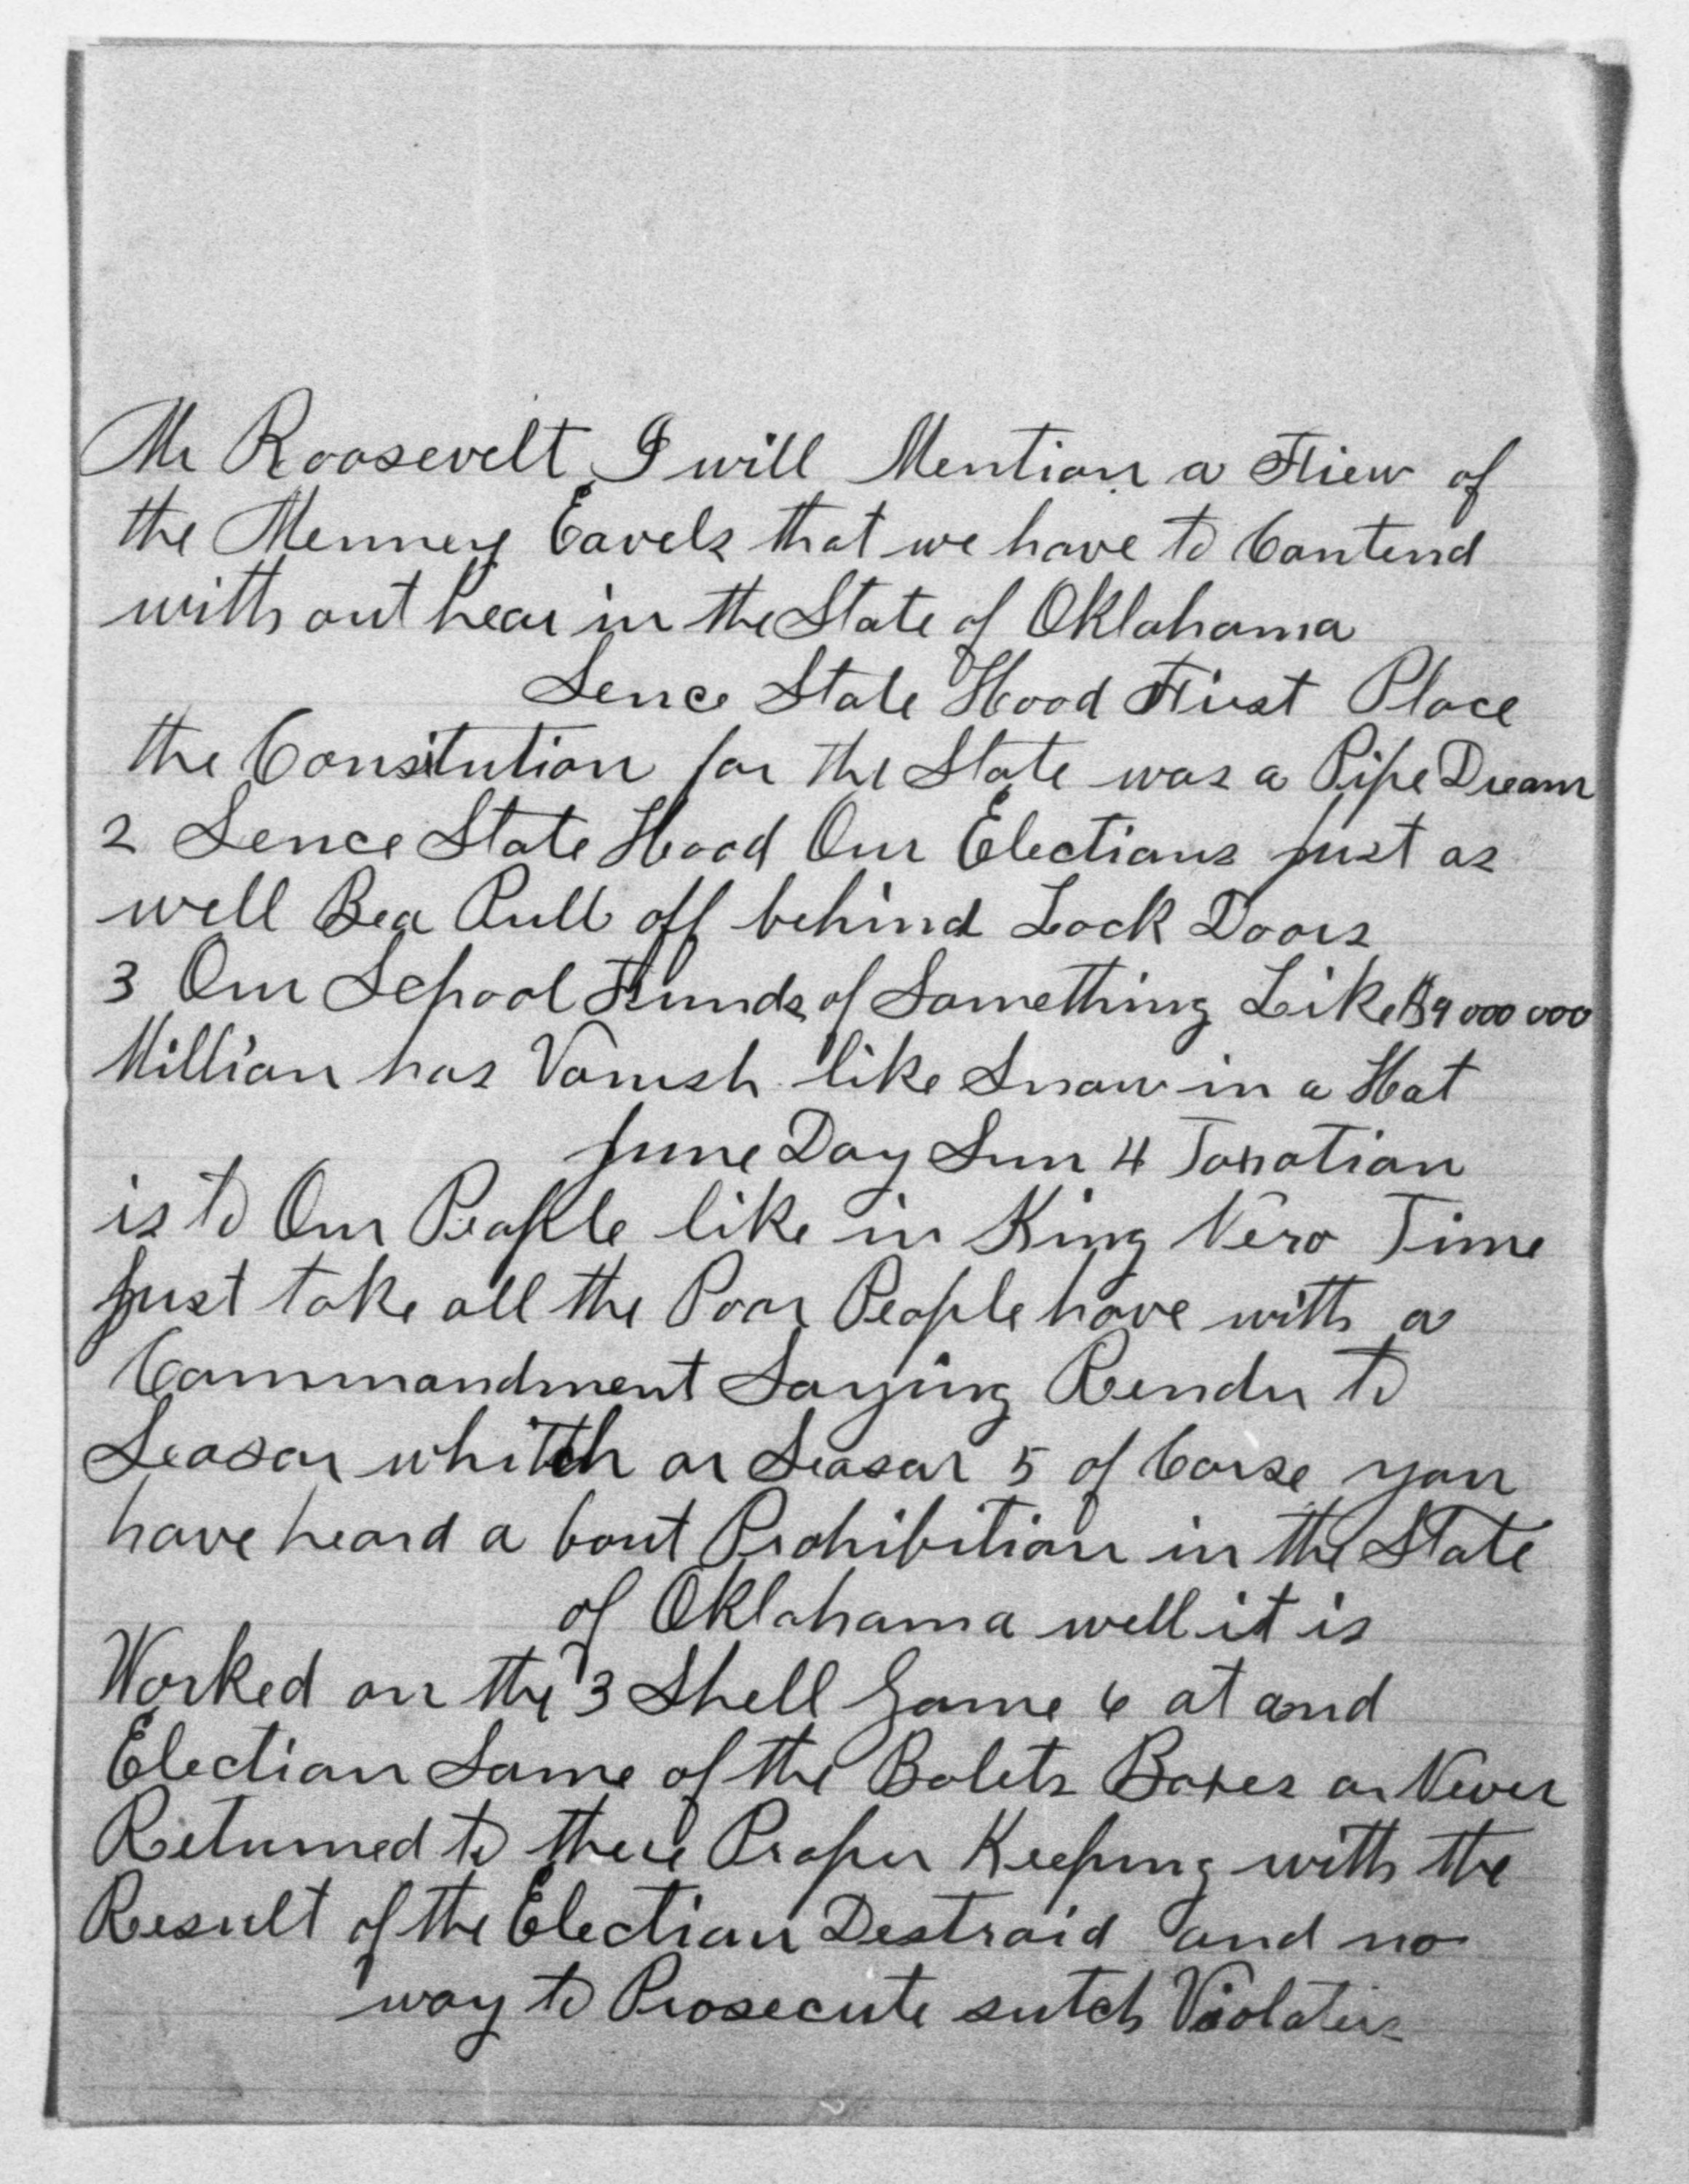 Mr Roosevelt I will Mention a Fiew of
the Menney Eavels that we have to Contend
with out hear in the State of Oklahoma
Sence State Hood First Place
the Consitution for the State was a Pipe Dream
2 Sence State Hood Our Elections just as
well Bea Pull off behind Lock Doors
3 Our School Funds of Something Like $9 000 000
Million has Vanish like Snow in a Hot
June Day Sun 4 Taxation
is to Our People like in King Nero Time
just take all the Poor People have with a
Commandment Saying Render to
Seasar whitch ar Seasar 5 of Corse you
have heard a bout Prohibition in the State
of Oklahoma well it is
Worked on the 3 Shell Game 6 at and
Election Some of the Bolets Boxes ar Never
Returned to there Proper Keeping with the
Result of the Election Destroid and no
way to Prosecute sutch Violaters